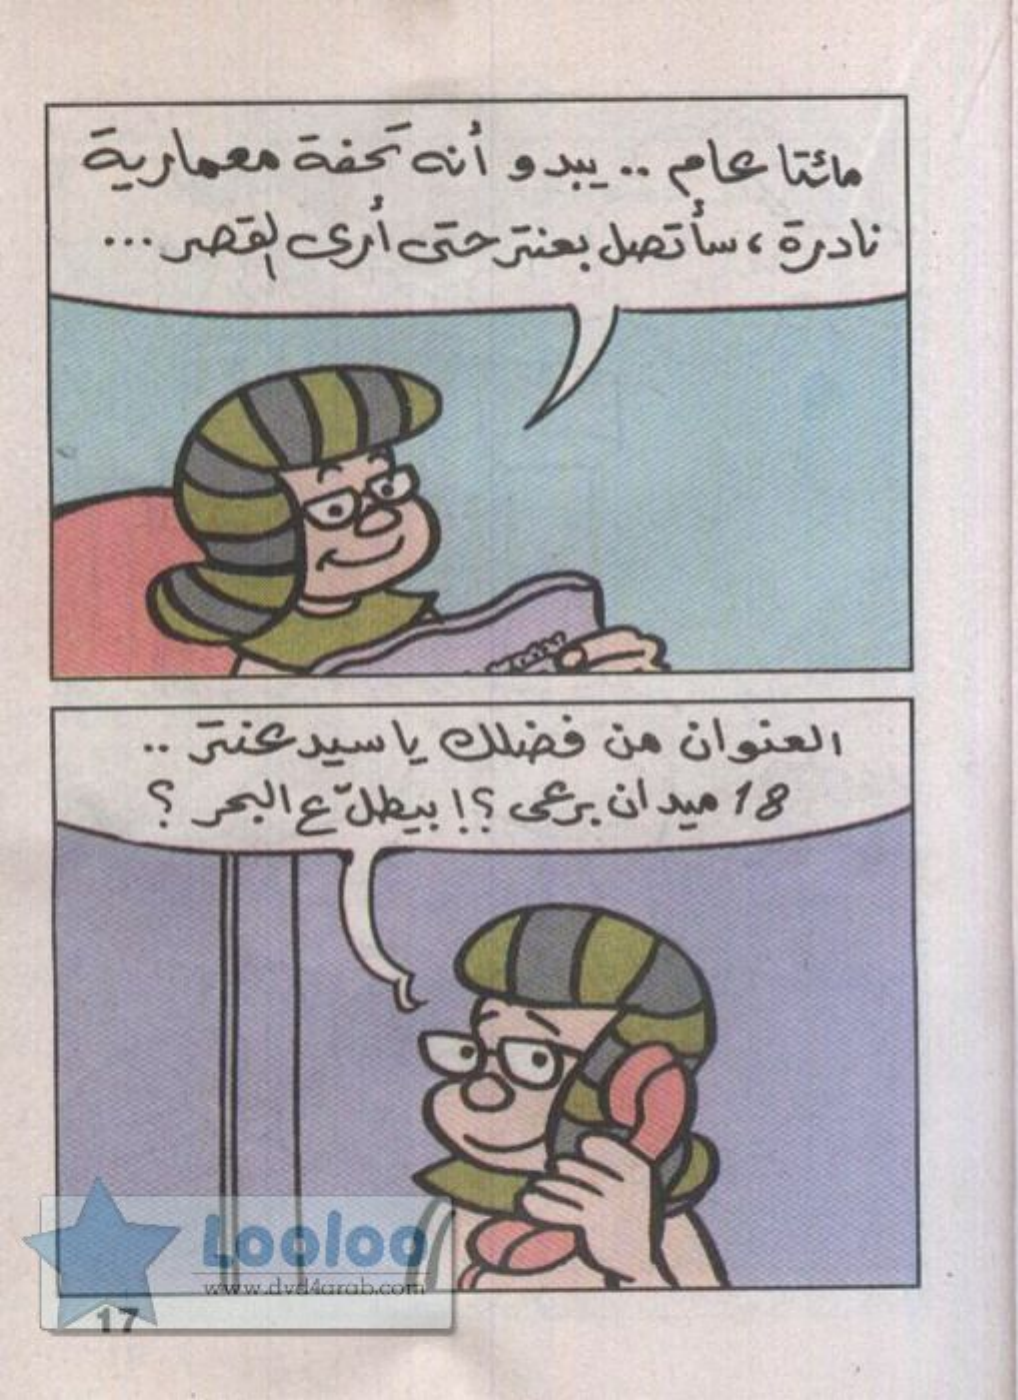 مائتا عام .. يبدو أنه تحفة معمارية
نادرة ، سأتصل بعنتر حتى أرى القصر ...
العنوان من فضلك يا سيد عنتر ..
18 ميدان برعى ؟! بيطلّ ع البحر ؟
Looloo
www.dvd4arab.com
17